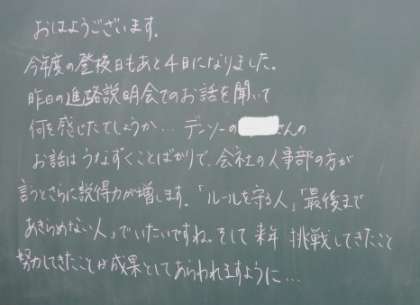 おはようございます。
今年度の登校日もあと4日になりました。
昨日の進路説明会でのお話を聞いて
何を感じたでしょうか… デンソーの さんの
お話はうなずくことばかりで、会社の人事部の方が
言うとさらに説得力が増します。「ルールを守る人」「最後まで
あきらめない人」でいたいですね。そして来年 挑戦してきたこと
努力してきたことが成果としてあらわれますように…